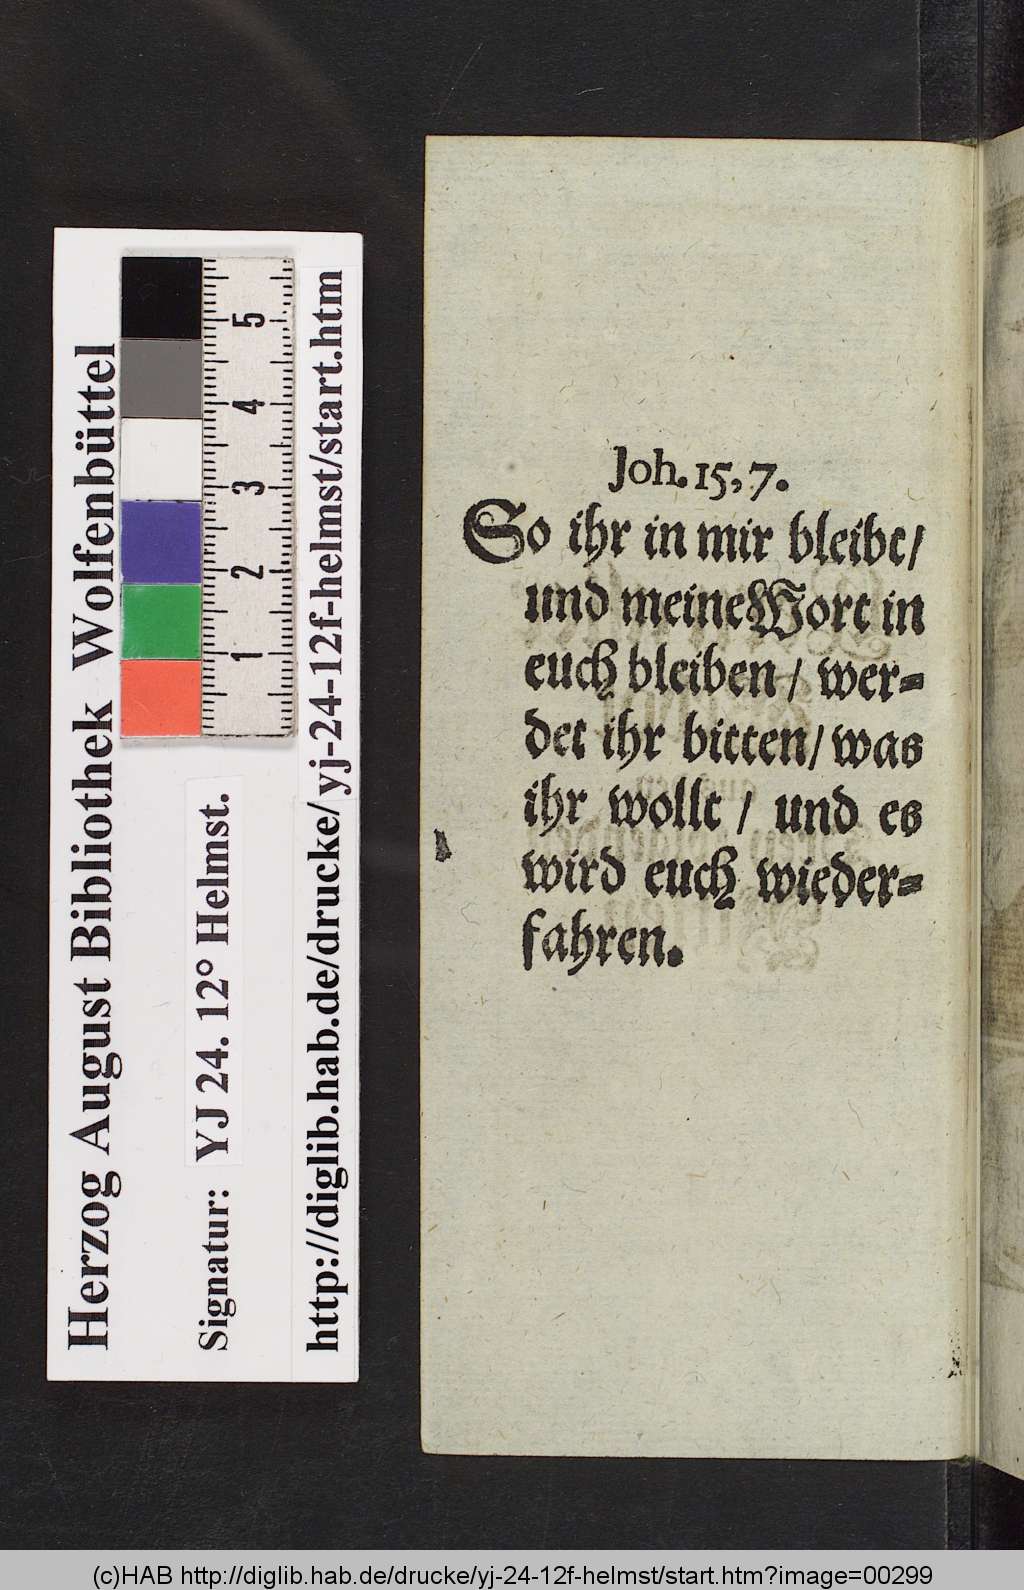 Herzog August Bibliothek Wolfenbüttel
Signatur: YJ 24. 12° Helmst.
http://diglib.hab.de/drucke/yj-24-12f-helmst/start.htm
5
4
3
2
1
Joh. 15, 7.
So ihr in mir bleibt/
und meine Wort in
euch bleiben / wer-
det ihr bitten/ was
ihr wollt / und es
wird euch wieder-
fahren.
(c)HAB http://diglib.hab.de/drucke/yj-24-12f-helmst/start.htm?image=00299